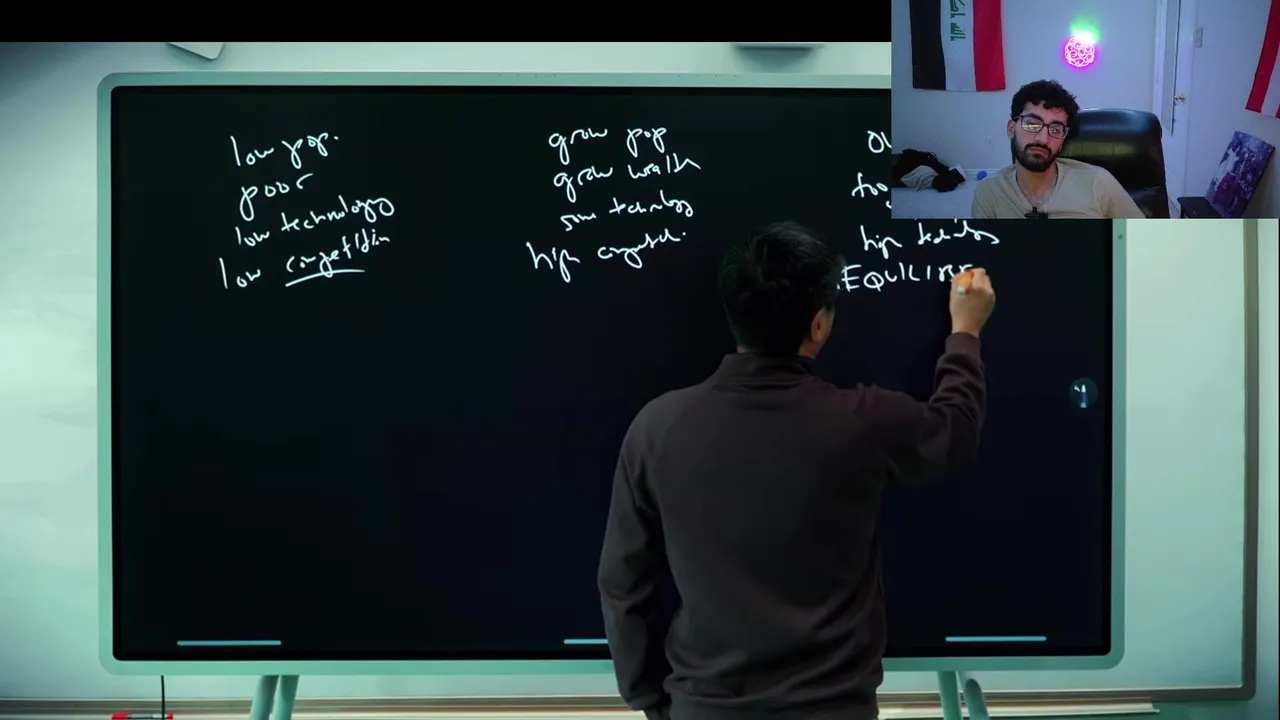 low pop.
poor
low technology
low competition
grow pop
grow wealth
some technology
high competit.
high technology
EQUILIBR